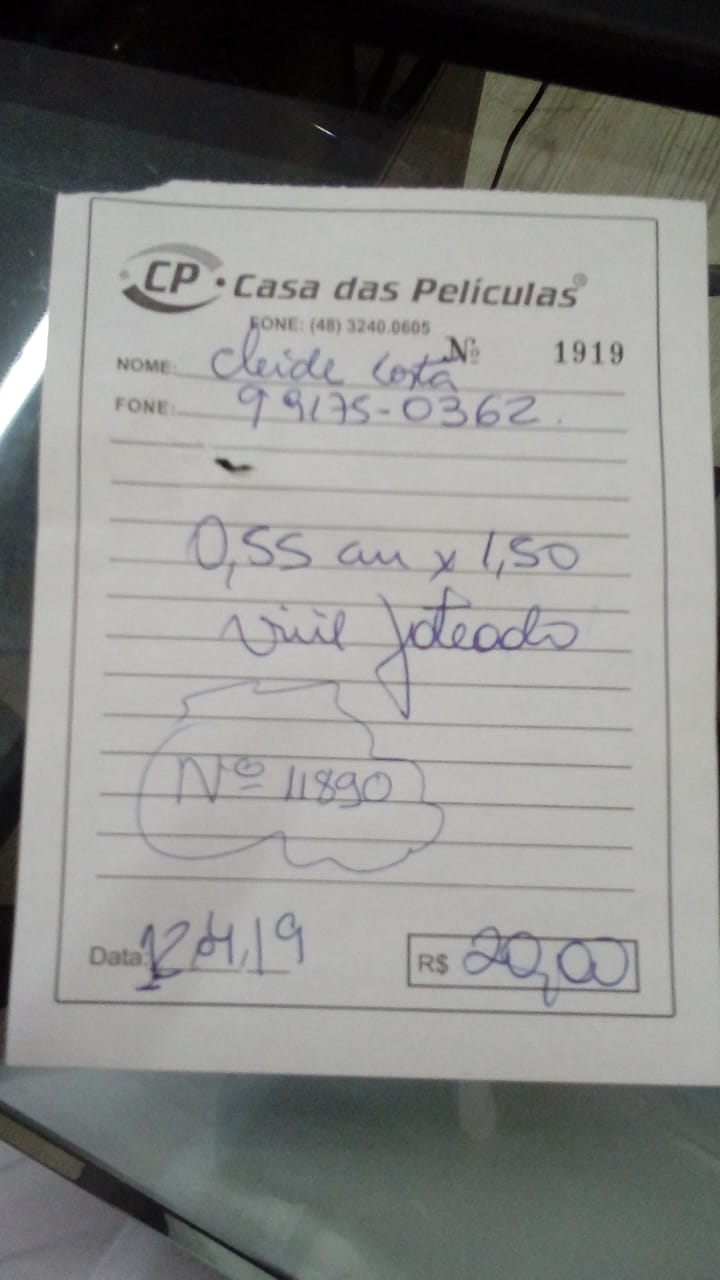 CP · Casa das Películas®
FONE: (48) 3240.0605
Nº 1919
NOME: Cleide Costa
FONE: 99175-0362.
0,55 cm x 1,50
vinil Jateado
Nº 11890
Data: 12,04,19 R$ 20,00